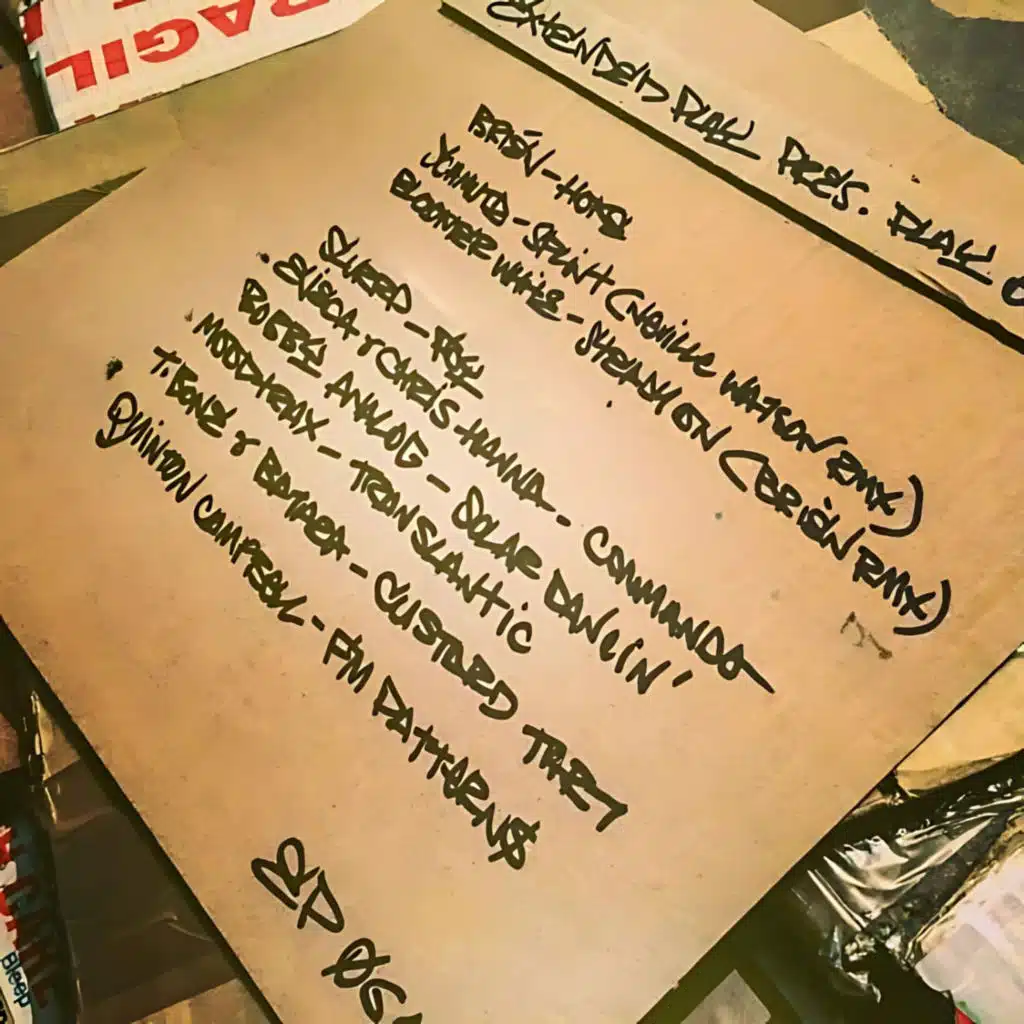 FRAGIL
EXTENDED PLAY PRES. PLAY
BRIÈN - HOKO
SCHMUTZ - SPLINT (NEVILLE WATSON RMX)
BLOOMER WHITE - STEADY ON (BRIÈN RMX)
- CHRIS HANNA - COMMANDO
ANALOG - SOLAR DANCIN'
MOODTRAX - TRANSLANTIC
T-BONE & - CUSTARD TART
QUINTON CAMPBELL - FM PATTERNS
Bleep